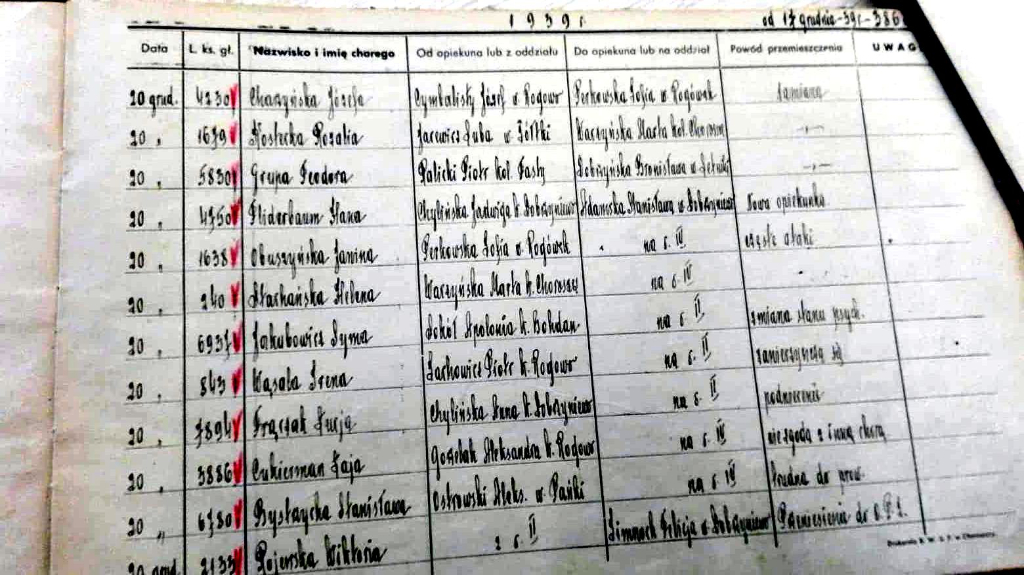 1939 r. od 17 grudnia-39r-386
Data L. ks. gł. Nazwisko i imię chorego Od opiekuna lub z oddziału Do opiekuna lub na oddział Powód przemieszczenia UWAG
20 grud. 4230 V Charzyńska Józefa Cymbalisty Józef w. Rogowr Perkowska Zofia w Rogówek zamiana
20 „ 1679 V Rozalia Jarewicz Luba w Żółtki Warzyńska Marta kol. -„-
20 „ 5830 V Grupa Teodora Palicki Piotr kol. Fasty Dobrzyńska Bronisława w -„-
20 „ 4750 V Fliderbaum Hana Chylińska Jadwiga k. Dobrzyniewr Adamska Stanisława w Dobrzyniewr Nowa opiekunka
20 „ 1638 V Obuszyńska Janina Perkowska Zofia w Rogówek na o. IV częste ataki
20 „ 240 V Stachańska Helena Warzyńska Marta k. Choroszcz na o. IV „
20 „ 6937 V Jakubowicz Syma Sokół Apolonia k. Bohdan na o. II zmiana stanu psych.
20 „ 843 V Kąsala Irena Lachowicz Piotr k. Rogowr na o. II zanieczyszcza się
20 „ 7894 V Frączak Łucja Chylińska Anna k. Dobrzyniewr na o. II podniecenie
20 „ 3886 V Cukierman Faja Aleksandra k. Rogowr na o. IV niezgoda z inną chorą
20 „ 6780 V Bystrzycka Stanisława Ostrowski Aleks. w. Pańki na o. IV trudna do prow.
20 grud. 2133 V Rajewska Wiktoria z o. II Felicja w Dobrzyniewr Przeniesienie do O.P.R.
Drukarnia w Choroszczy